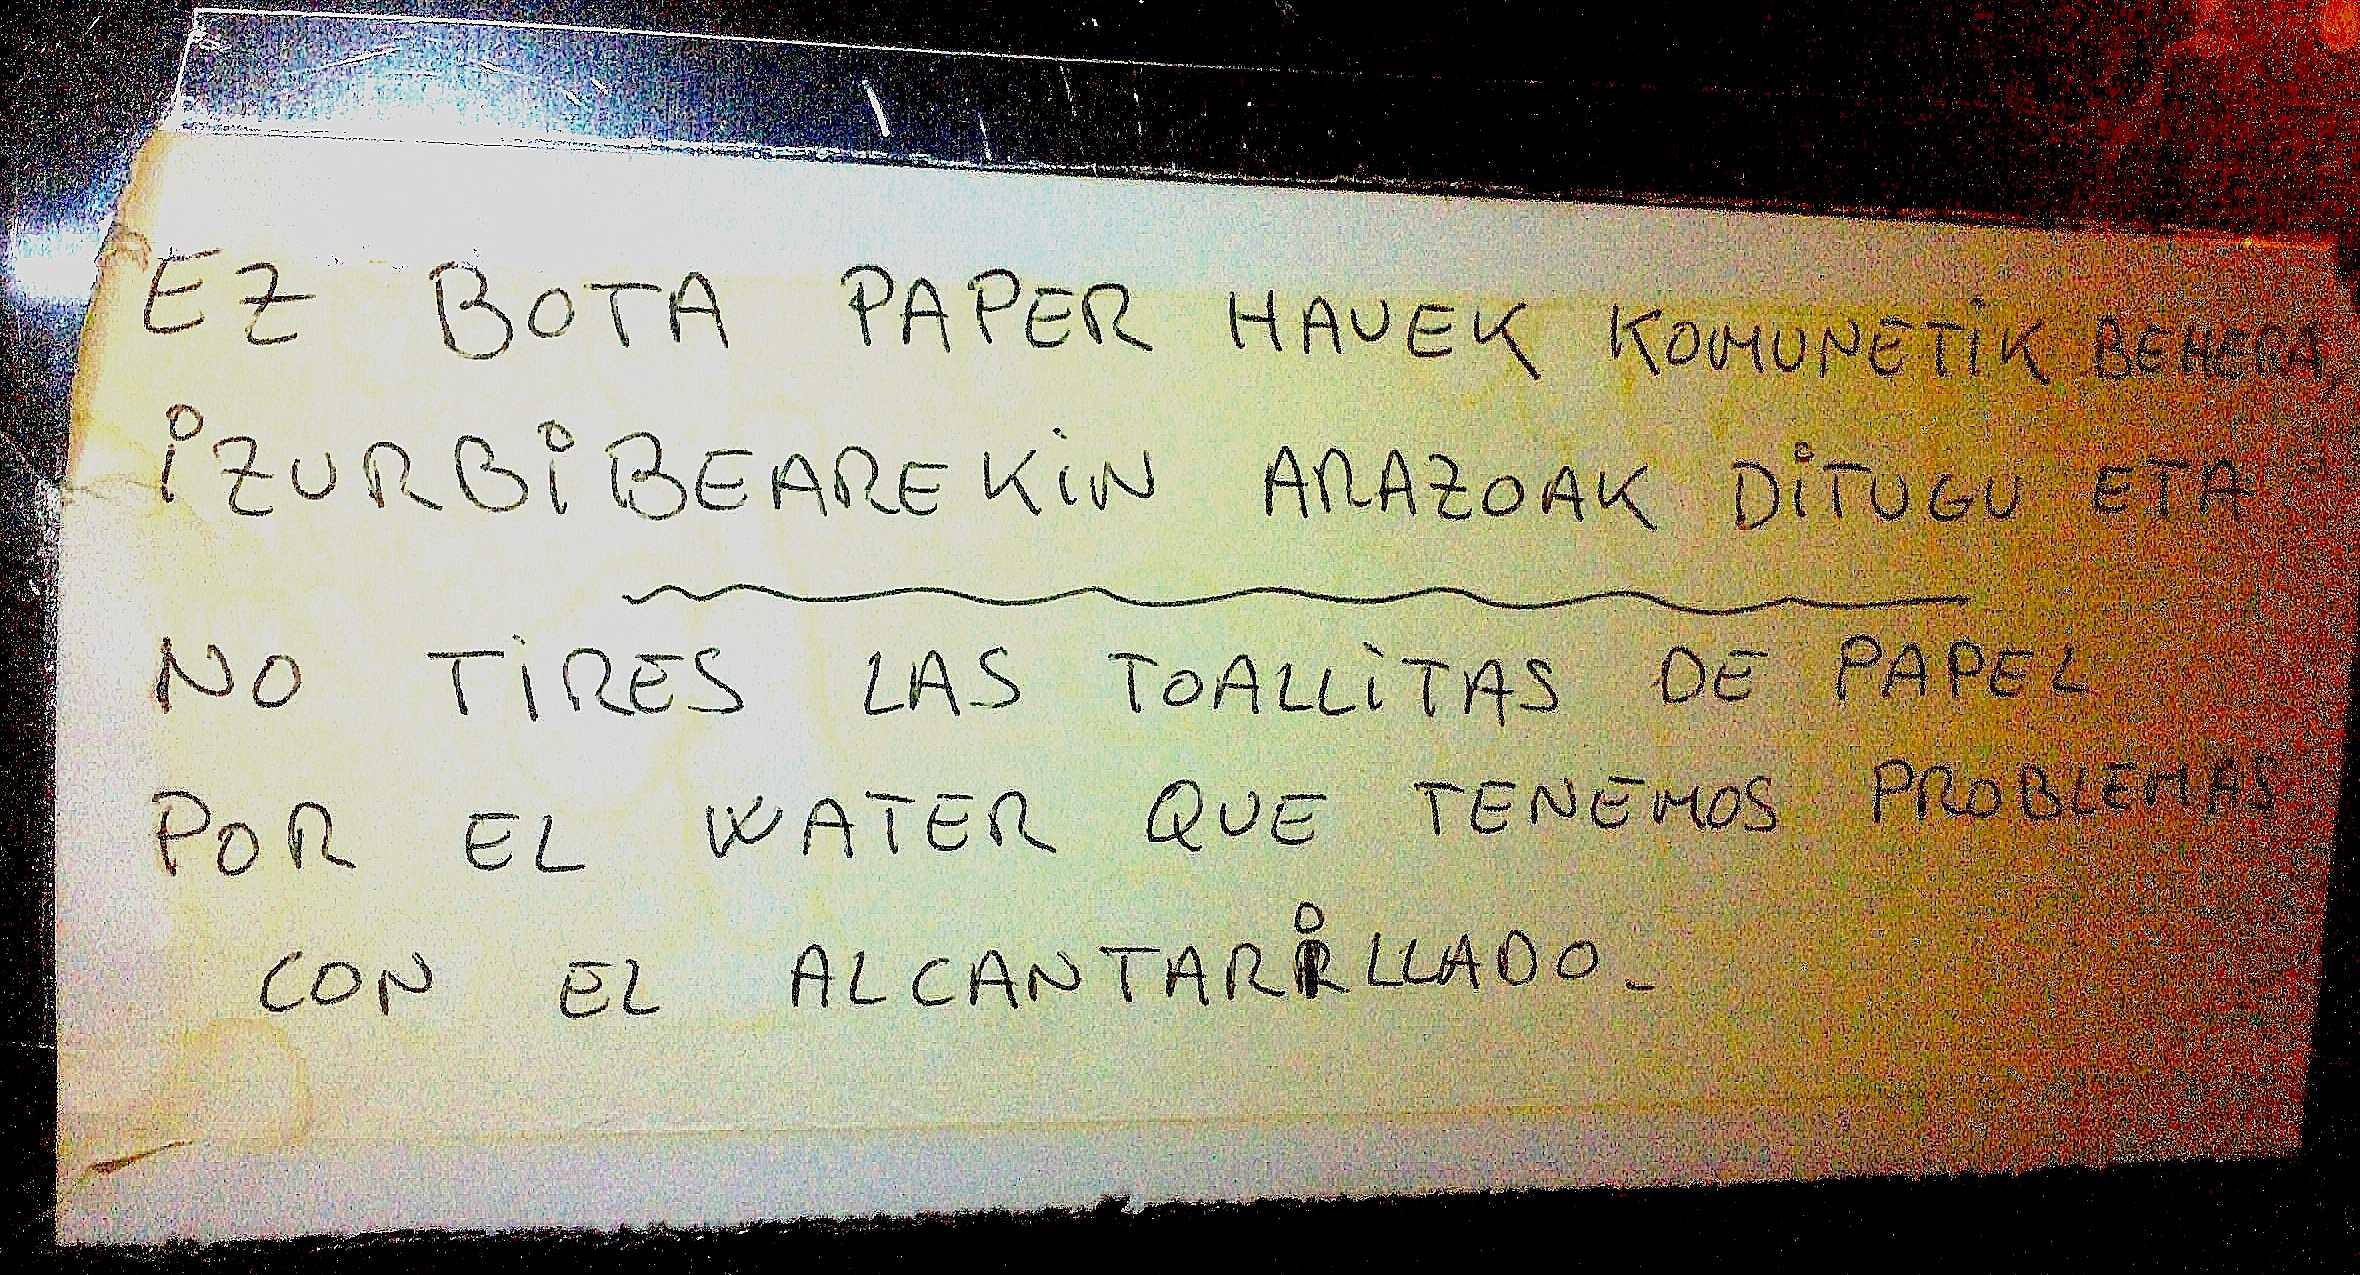 EZ BOTA PAPER HAUEK KOMUNETIK BEHERA,
IZURBIBEAREKIN ARAZOAK DITUGU ETA
NO TIRES LAS TOALLITAS DE PAPEL
POR EL WATER QUE TENEMOS PROBLEMAS
CON EL ALCANTARILLADO.